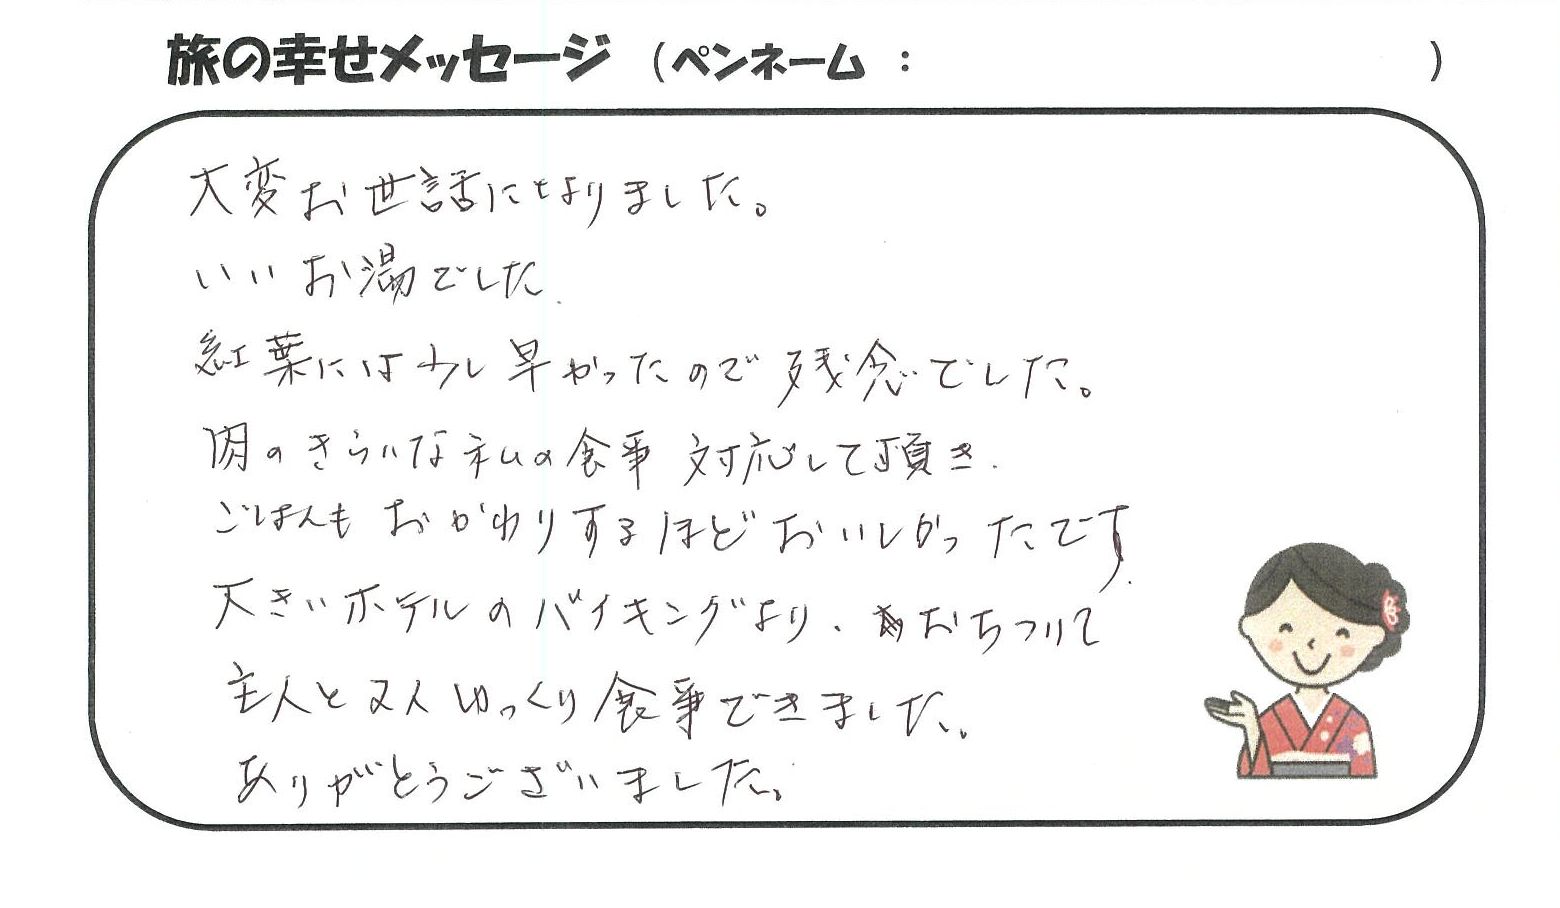 旅の幸せメッセージ （ペンネーム ： ）
大変お世話になりました。
いいお湯でした.
紅葉には少し早かったので残念でした。
肉のきらいな私の食事 対応して頂き.
ごはんも おかわりするほど おいしかったです.
大きいホテルのバイキングより、おちついて
主人と2人ゆっくり食事できました。
ありがとうございました。